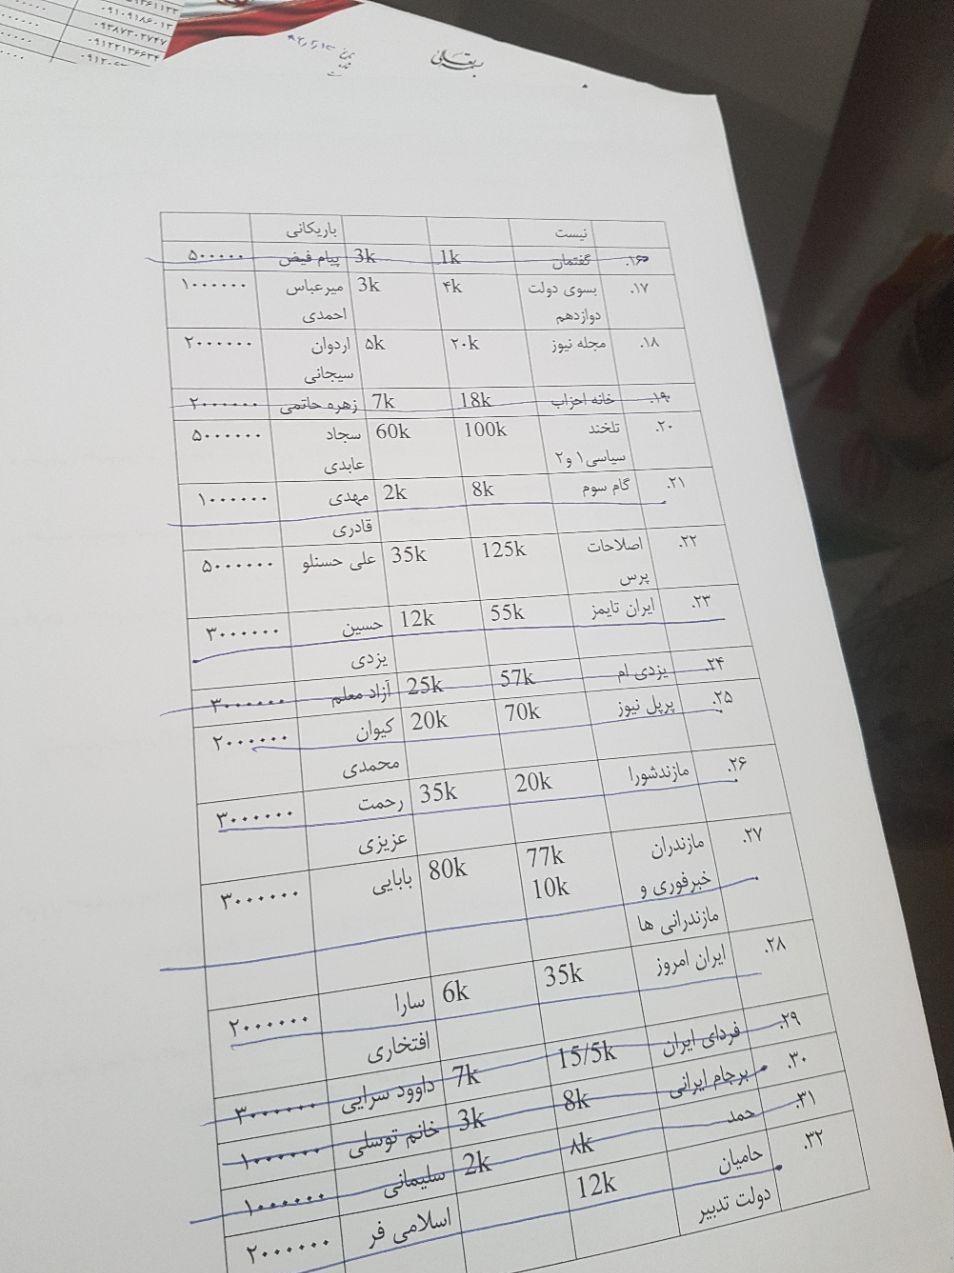 ۰۹۱۰۹۱۸۶۰۱۳
۰۹۳۸۷۳۰۲۷۴۷
۰۹۱۲۲۱۳۶۶۳۴
بسمه تعالی
نیست باریکانی
۱۶. گفتمان 1k 3k پیام فیض ۵۰۰۰۰۰
۱۷. بسوی دولت ۴k 3k میرعباس ۱۰۰۰۰۰۰
دوازدهم احمدی
۱۸. مجله نیوز ۲۰k ۵k اردوان ۲۰۰۰۰۰۰
سیجانی
۱۹. خانه احزاب 18k 7k زهره حاتمی ۲۰۰۰۰۰۰
۲۰. تلخند 100k 60k سجاد ۵۰۰۰۰۰۰
سیاسی۱ و۲ عابدی
۲۱. گام سوم 8k 2k مهدی ۱۰۰۰۰۰۰
قادری
۲۲. اصلاحات 125k 35k علی حسنلو ۵۰۰۰۰۰۰
پرس
۲۳. ایران تایمز 55k 12k حسین ۳۰۰۰۰۰۰
یزدی
۲۴. یزدی ام 57k 25k آزاد معلم ۳۰۰۰۰۰۰
۲۵. پرپل نیوز 70k 20k کیوان ۲۰۰۰۰۰۰
محمدی
۲۶. مازندشورا 20k 35k رحمت ۳۰۰۰۰۰۰
عزیزی
۲۷. مازندران 77k 80k بابایی ۳۰۰۰۰۰۰
خبرفوری و 10k
مازندرانی ها
۲۸. ایران امروز 35k 6k سارا ۲۰۰۰۰۰۰
افتخاری
۲۹. فردای ایران 15/5k 7k داوود سرایی ۳۰۰۰۰۰۰
۳۰. برجام ایرانی 8k 3k خانم توسلی ۱۰۰۰۰۰۰
۳۱. حمد ۸k 2k سلیمانی ۱۰۰۰۰۰۰
۳۲. حامیان 12k اسلامی فر ۲۰۰۰۰۰۰
دولت تدبیر